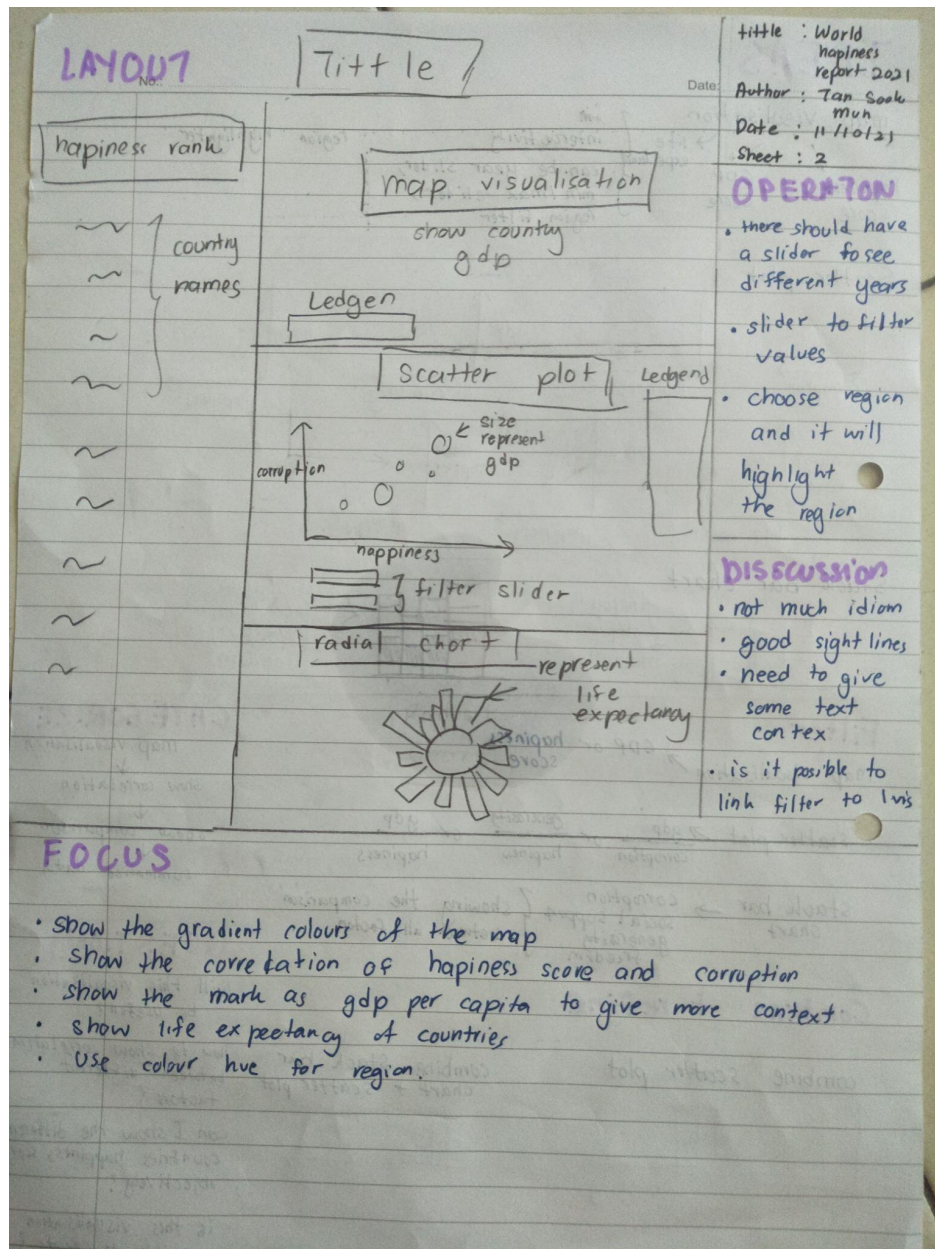 LAYOUT
No.:
Tittle
Date:
tittle : World
hapiness
report 2021
Author : Tan Sook
mun
Date : 11/10/21
Sheet : 2
hapiness rank
country
names
map visualisation
show country
gdp
Ledgen
Scatter plot
Ledgend
size
represent
gdp
corruption
happiness
filter slider
radial chart
represent
life
expectancy
OPERATON
• there should have
a slider to see
different years
• slider to filter
values
• choose region
and it will
highlight
the region
DISSCUSSION
• not much idiom
• good sight lines
• need to give
some text
contex
• is it posible to
link filter to 1 vis
FOCUS
• show the gradient colours of the map
• show the corretation of hapiness score and corruption
• show the mark as gdp per capita to give more context
• show life expectancy of countries
• use colour hue for region.